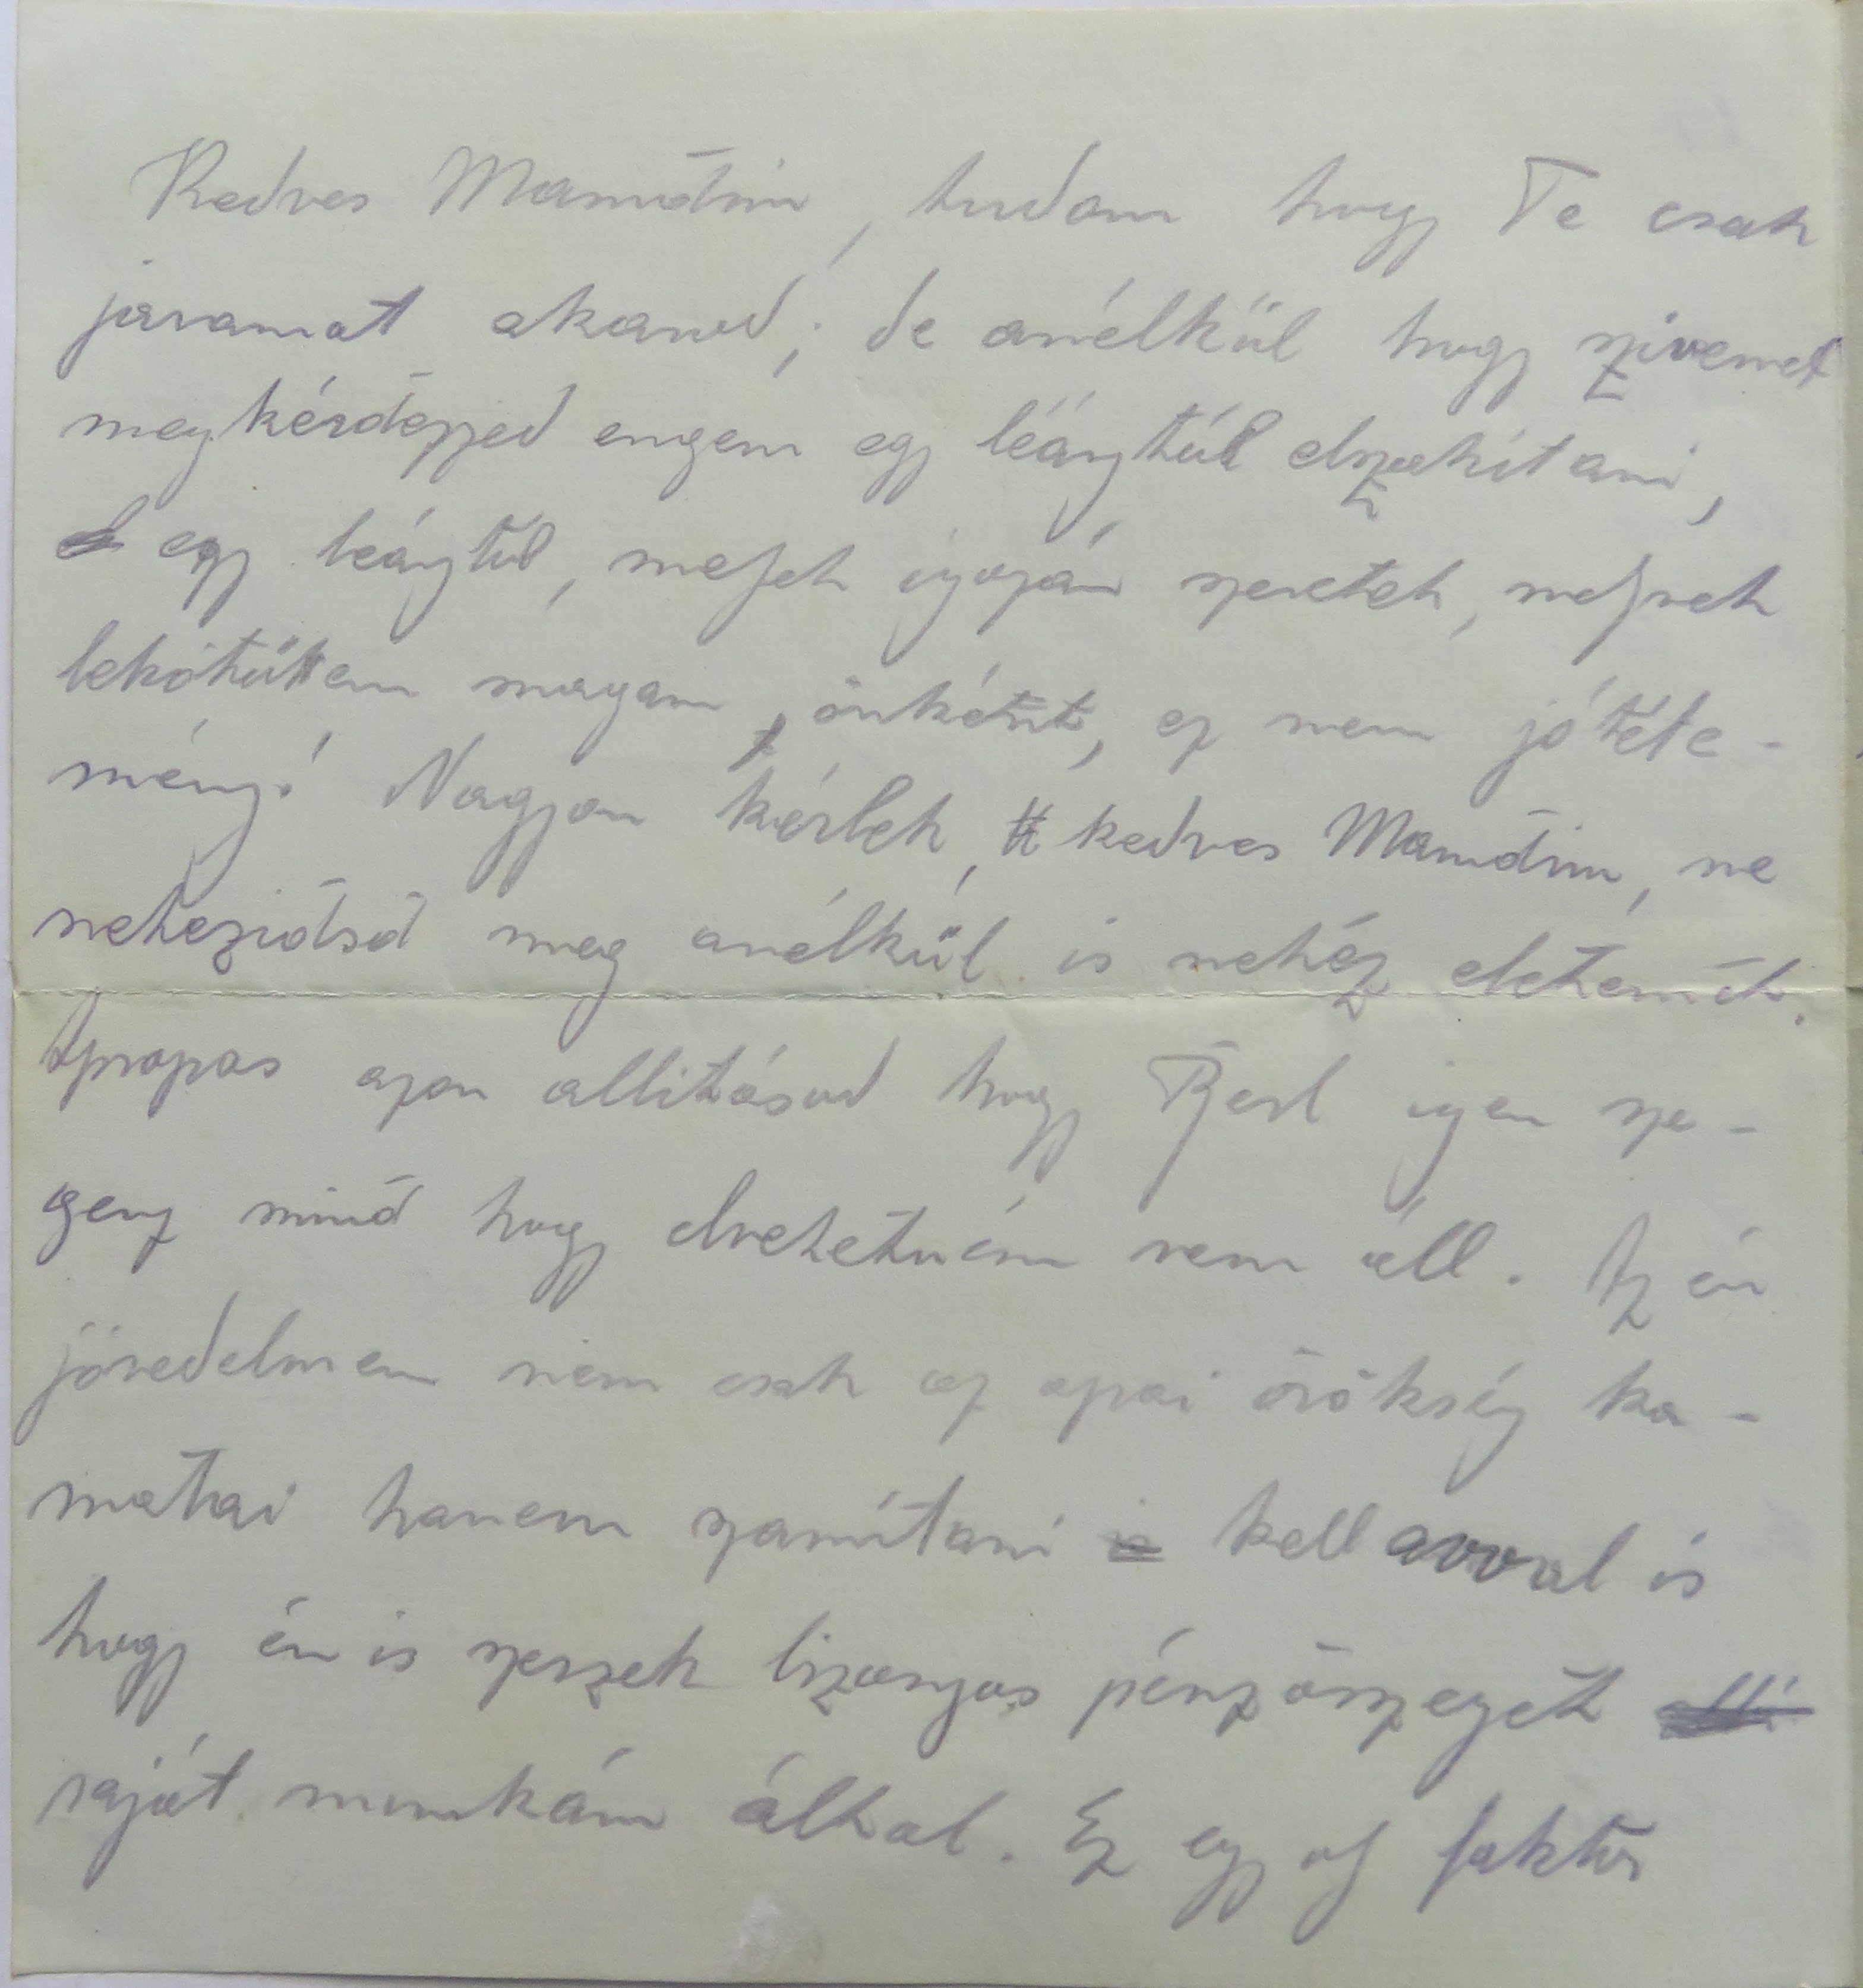 Kedves Mamám, tudom hogy Te csak
javamat akarod; de anélkül hogy szivemet
megkérdezzed engem egy leánytúl elszakítani,
egy leánytúl, melyek igazán szeretek, melynek
lekötöttem magam, önként, ez nem jótéte-
mény! Nagyon kérlek, kedves Mamám, ne
nehezidsd meg anélkül is nehéz eletemet.
Apropos azon allitásod hogy Perl igen sze-
geny mind hogy elvehetném nem áll. Az én
jövedelmem nem csak az apai örökség ka-
matai hanem szamítani kell avval is
hogy én is szerzek bizonyos pénzösszeget
saját munkám által. Ez egy oly faktor